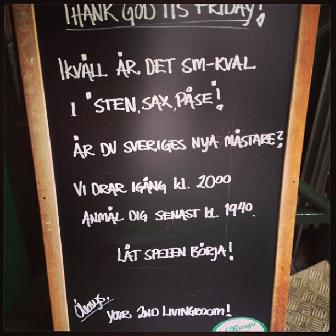 THANK GOD ITS FRIDAY!
IKVÄLL ÄR DET SM-KVAL
I "STEN, SAX, PÅSE!
ÄR DU SVERIGES NYA MÄSTARE?
VI DRAR IGÅNG KL. 2000
ANMÄL DIG SENAST KL. 1940.
LÅT SPELEN BÖRJA!
YOUR 2ND LIVINGROOM!